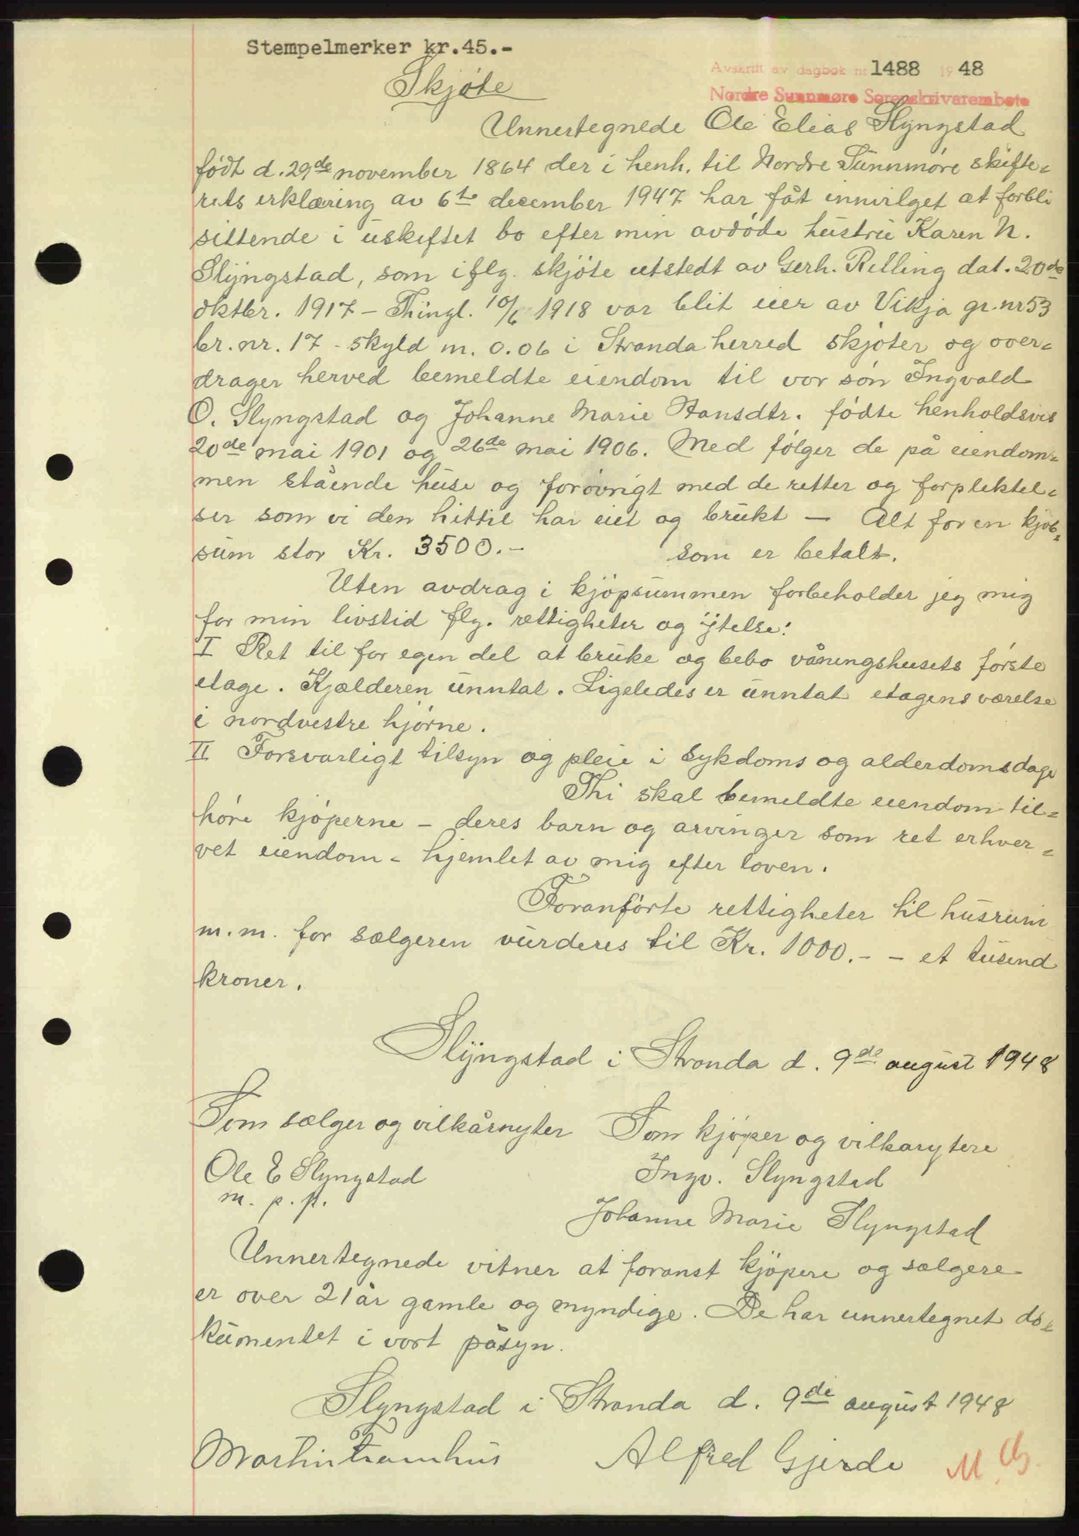 Stempelmerker kr.45.-
Avskrift av dagbok nr 1488 1948
Nordre Sunnmøre Sorenskrivarembete
Skjøte
Unnertegnede Ole Elias Slyngstad
født d. 29de november 1864 der i henh. til Nordre Sunnmøre skifte-
rets erklæring av 6te december 1947 har fåt innvilget at forbli
sittende i uskiftet bo efter min avdøde hustru Karen N.
Slyngstad, som iflg. skjøte utstedt av Gerh. Relling dat. 20de
oktbr. 1917 - Thingl. 10/6 1918 var blit eier av Vikja gr. nr 53
br. nr. 17 - skyld m. 0.06 i Stranda herred skjøter og over-
drager herved bemeldte eiendom til vor søn Ingvald
O. Slyngstad og Johanne Marie Hansdtr. fødte henholdsvis
20de mai 1901 og 26de mai 1906. Med følger de på eiendom-
men stående huse og forøvrigt med de retter og forpliktel-
ser som vi den hittil har eiet og brukt - Alt for en kjøb-
sum stor Kr. 3500.- som er betalt.
Uten avdrag i kjøpsummen forbeholder jeg mig
for min livstid flg. rettigheter og ytelse:
I Ret til for egen del at bruke og bebo våningshusets første
etage. Kjælderen unntat. Ligeledes er unntat etagens værelse
i nordvestre hjørne.
II Forsvarligt tilsyn og pleie i sykdoms og alderdomsdage
Thi skal bemeldte eiendom til-
høre kjøperne - deres barn og arvinger som ret erhver-
vet eiendom - hjemlet av mig efter loven.
Foranførte rettigheter til husrum
m.m. for sælgeren vurderes til Kr. 1000.- - et tusind
kroner.
Slyngstad i Stranda d. 9de august 1948
Som sælger og vilkårnyter Som kjøper og vilkarytere
Ole E Slyngstad Ingv. Slyngstad
m. p. p.
Johanne Marie Slyngstad
Unnertegnede vitner at foranst kjøpere og sælgere
er over 21 år gamle og myndige. De har unnertegnet do-
kumentet i vort påsyn.
Slyngstad i Stranda d. 9de august 1948
Martin Framhus Alfred Gjerde